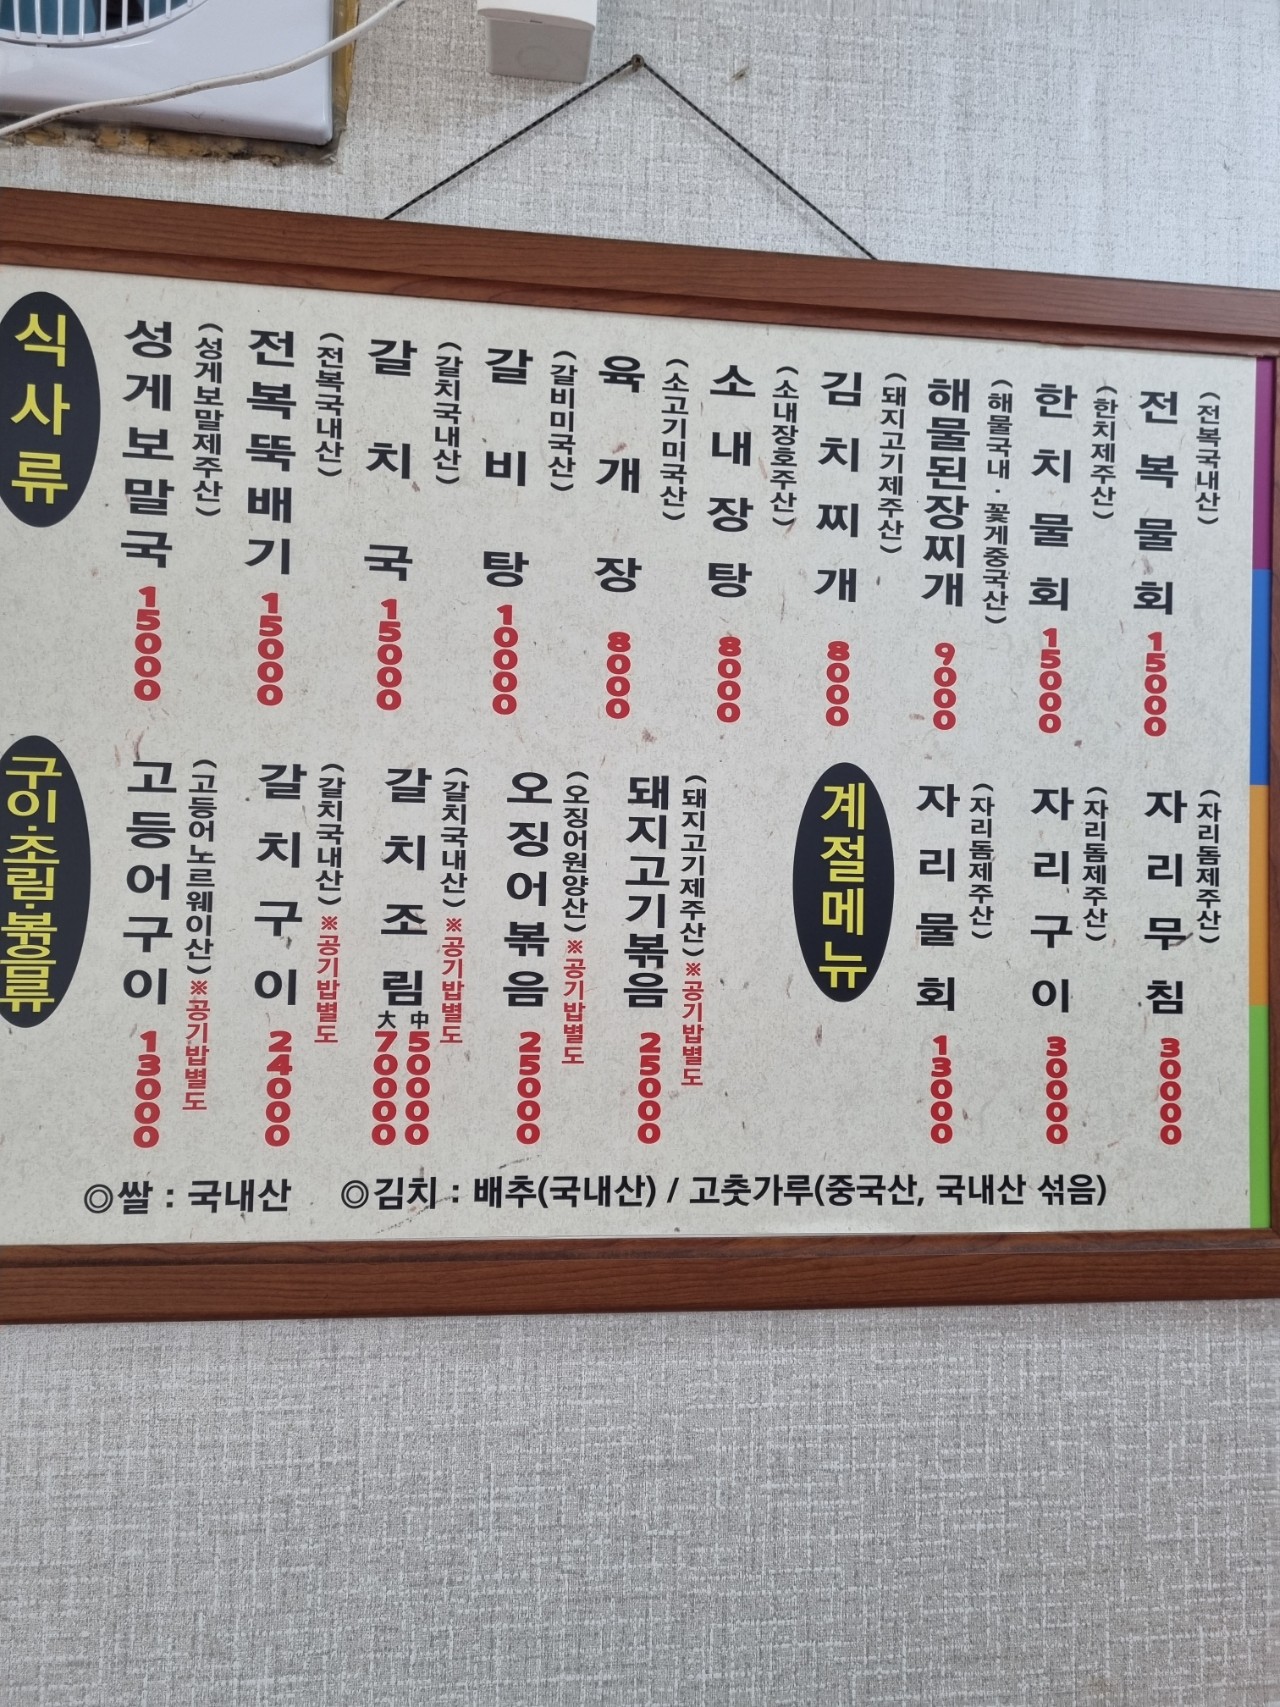 식사류
성게보말국 (성게보말제주산) 15000
전복뚝배기 (전복국내산) 15000
갈치국 (갈치국내산) 15000
갈비탕 (갈비미국산) 10000
육개장 (소고기미국산) 8000
소내장탕 (소내장호주산) 8000
김치찌개 (돼지고기제주산) 8000
해물된장찌개 (해물국내·꽃게중국산) 9000
한치물회 (한치제주산) 15000
전복물회 (전복국내산) 15000
구이·조림·볶음류
고등어구이 (고등어노르웨이산) ※공기밥별도 13000
갈치구이 (갈치국내산) ※공기밥별도 24000
갈치조림 (갈치국내산) ※공기밥별도 大 70000 中 50000
오징어볶음 (오징어원양산) ※공기밥별도 25000
돼지고기볶음 (돼지고기제주산) ※공기밥별도 25000
계절메뉴
자리물회 (자리돔제주산) 13000
자리구이 (자리돔제주산) 30000
자리무침 (자리돔제주산) 30000
◎쌀 : 국내산 ◎김치 : 배추(국내산) / 고춧가루(중국산, 국내산 섞음)